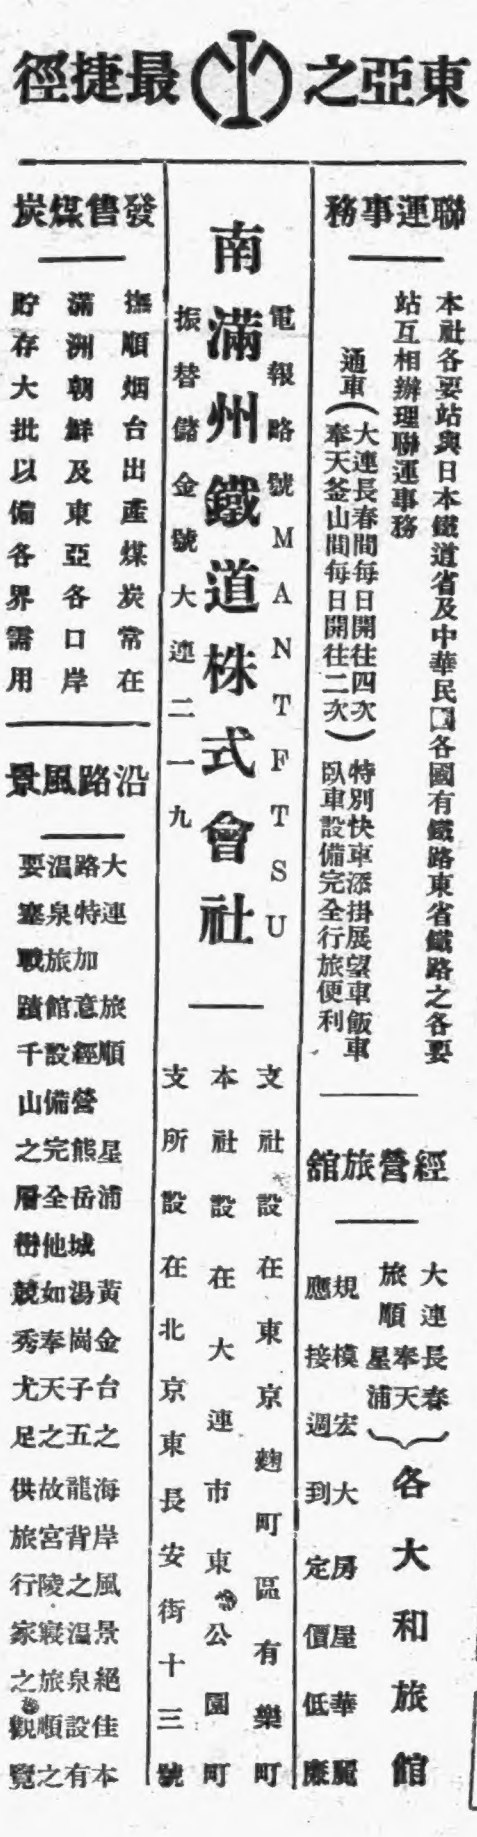 東亞之最捷徑
聯運事務
本社各要站與日本鐵道省及中華民國各國有鐵路東省鐵路之各要
站互相辦理聯運事務
通車(大連長春間每日開往四次)特別快車添掛展望車飯車
奉天釜山間每日開往二次 臥車設備完全行旅便利
經營旅館
大連 長春
旅順 奉天
星浦
各大和旅館
規模宏大房屋華麗
應接週到定價低廉
電報略號MANTFTSU
南滿州鐵道株式會社
振替儲金號大連二一九
支社設在東京麴町區有樂町
本社設在大連市東公園町
支所設在北京東長安街十三號
發售煤炭
撫順烟台出產煤炭常在
滿洲朝鮮及東亞各口岸
貯存大批以備各界需用
沿路風景
大連 旅順 星浦 黃金台之海岸風景絕佳本
路特加意經營熊岳城湯崗子五龍背之溫泉設有
溫泉旅館設備完全他如奉天之故宮陵寢旅順之
要塞戰蹟千山之層巒競秀尤足供旅行家之觀覽